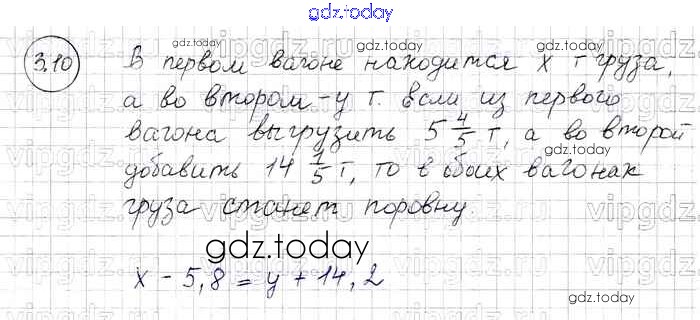 gdz.today
3.10 В первом вагоне находится x т груза,
а во втором – y т. если из первого
вагона выгрузить 5 4/5 т, а во второй
добавить 14 1/5 т, то в обоих вагонах
груза станет поровну.
gdz.today
x - 5,8 = y + 14,2